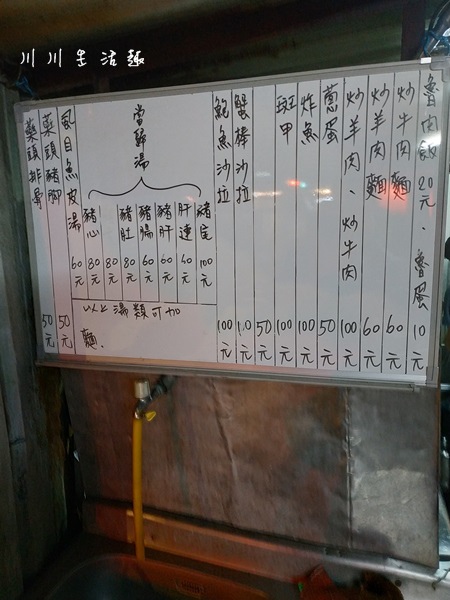 川川生活趣
魯肉飯20元、魯蛋10元
炒牛肉麵60元
炒羊肉麵60元
炒羊肉、炒牛肉100元
蔥蛋50元
炸魚100元
斑甲100元
50元
蟹棒沙拉
鮑魚沙拉100元
當歸湯
豬尾100元
肝連40元
豬肝60元
豬腸60元
豬肚80元
80元
80元
豬心60元
以上湯類可加
麵.
虱目魚皮湯50元
藥頭豬腳
藥頭排骨50元